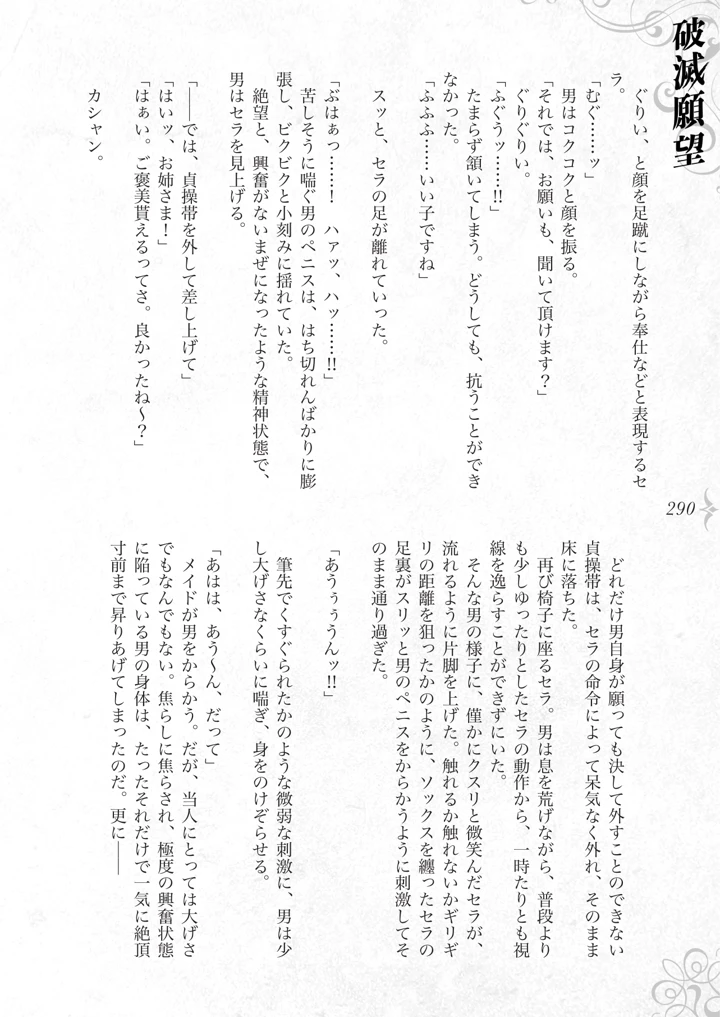 破滅願望
　ぐりぃ、と顔を足蹴にしながら奉仕などと表現するセ
ラ。
「むぐ……ッ」
　男はコクコクと顔を振る。
「それでは、お願いも、聞いて頂けます？」
　ぐりぐりぃ。
「ふぐうッ……!!」
　たまらず頷いてしまう。どうしても、抗うことができ
なかった。
「ふふふ……いい子ですね」
　スッと、セラの足が離れていった。
「ぶはぁっ……！　ハァッ、ハッ……!!」
　苦しそうに喘ぐ男のペニスは、はち切れんばかりに膨
張し、ビクビクと小刻みに揺れていた。
　絶望と、興奮がないまぜになったような精神状態で、
男はセラを見上げる。
「――では、貞操帯を外して差し上げて」
「はいッ、お姉さま！」
「はぁい。ご褒美貰えるってさ。良かったね～？」
　カシャン。
290
　どれだけ男自身が願っても決して外すことのできない
貞操帯は、セラの命令によって呆気なく外れ、そのまま
床に落ちた。
　再び椅子に座るセラ。男は息を荒げながら、普段より
も少しゆったりとしたセラの動作から、一時たりとも視
線を逸らすことができずにいた。
　そんな男の様子に、僅かにクスリと微笑んだセラが、
流れるように片脚を上げた。触れるか触れないかギリギ
リの距離を狙ったかのように、ソックスを纏ったセラの
足裏がスリッと男のペニスをからかうように刺激してそ
のまま通り過ぎた。
「あうぅぅうんッ!!」
　筆先でくすぐられたかのような微弱な刺激に、男は少
し大げさなくらいに喘ぎ、身をのけぞらせる。
「あはは、あう～ん、だって」
　メイドが男をからかう。だが、当人にとっては大げさ
でもなんでもない。焦らしに焦らされ、極度の興奮状態
に陥っている男の身体は、たったそれだけで一気に絶頂
寸前まで昇りあげてしまったのだ。更に――